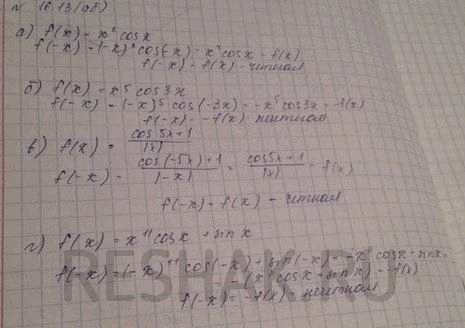 № 16.13(а,б)
а) f(x) = x² cosx
f(-x) = (-x)² cos(-x) = x² cosx = f(x)
f(-x) = f(x) - четная
б) f(x) = x⁵ cos3x
f(-x) = (-x)⁵ cos(-3x) = -x⁵ cos3x = -f(x)
f(-x) = -f(x) - нечетная
в) f(x) = cos5x+1 / |x|
f(-x) = cos(-5x)+1 / |-x| = cos5x+1 / |x| = f(x)
f(-x) = f(x) - четная
г) f(x) = x¹¹ cosx + sinx
f(-x) = (-x)¹¹ cos(-x) + sin(-x) = -x¹¹ cosx - sinx =
= -(x¹¹ cosx + sinx) = -f(x)
f(-x) = -f(x) - нечетная
RESHAK.RU